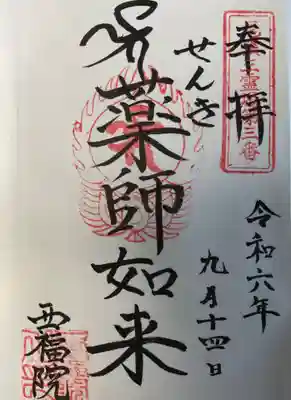 奉拝
令和六年
九月十四日
せんき
薬師如来
西福院